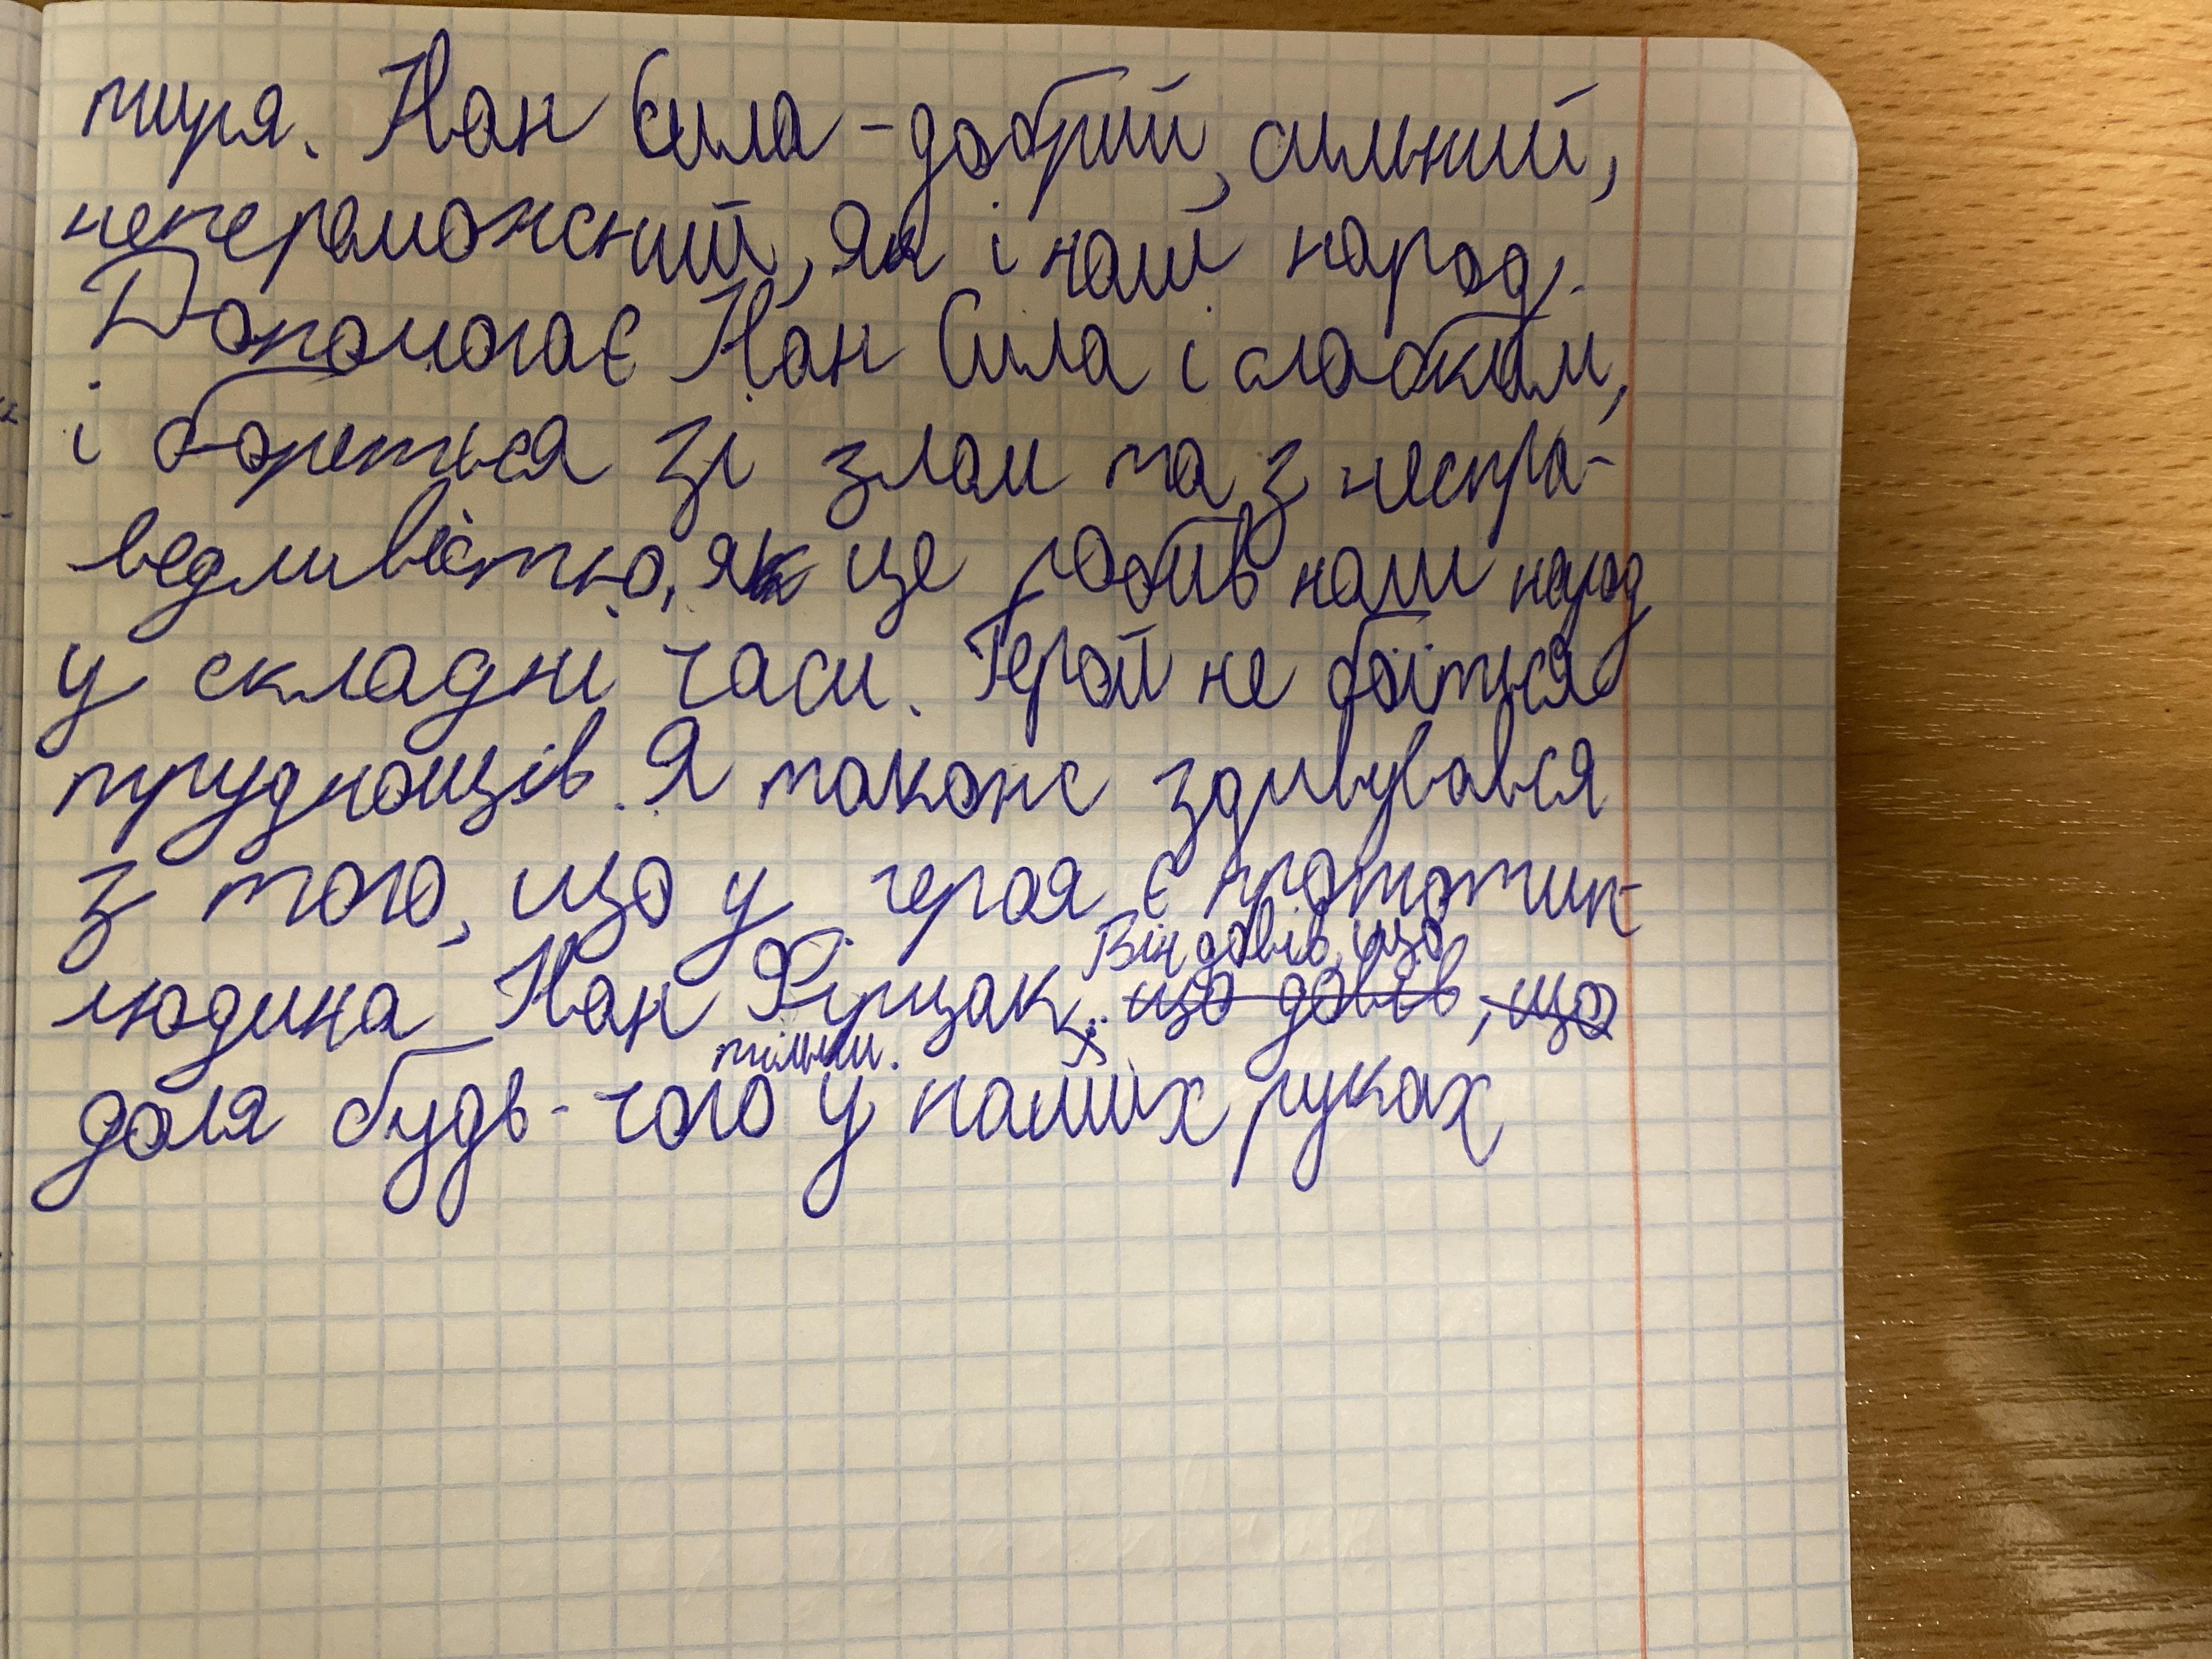 тиря. Іван Сила - добрий, сильний,
непереможний, як і наш народ.
Допомагає Іван Сила і слабким,
і бореться зі злом та з неспра-
ведливістю, як це робив наш народ
у складні часи. Герой не боїться
труднощів. Я також здивувався
з того, що у героя є прототип-
людина Іван Фірцак. Він довів, що
що довів, що
тільки
доля будь-чого у наших руках